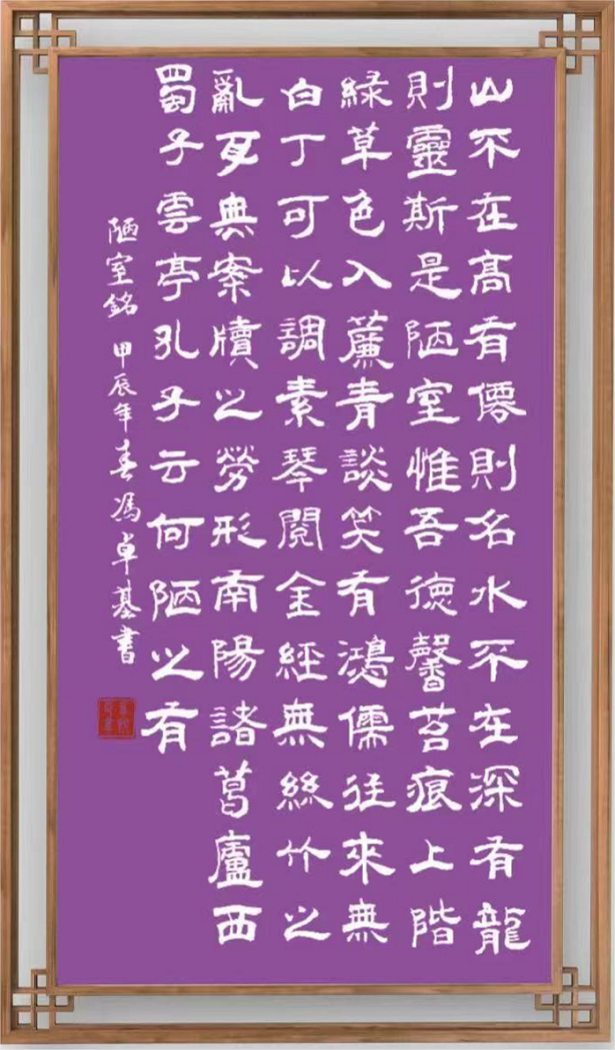 山不在髙有僊則名水不在深有龍
則靈斯是陋室惟吾德馨苔痕上階
緑草色入簾青談笑有鴻儒往來無
白丁可以調素琴閲金經無絲竹之
亂耳典案牘之勞形南陽諸葛廬西
蜀子雲亭孔子云何陋之有
陋室銘 甲辰年春馮卓基書